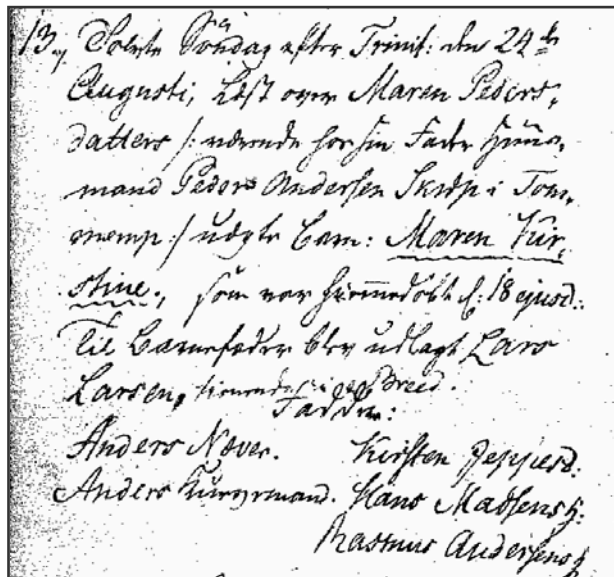 13. Tolvte Söndag efter Trinit: den 24de
Augusti, Læst over Maren Peders,
datters /: værende hos sin Fader Huus,
mand Peder Andersen Skrøp i Tom,
merup :/ uægte Barn: Maren Kir,
stine., som var hiemmedöbt d: 18 ejusd:
Til Barnefader blev udlagt Lars
Larsen, tienende i Breed.
Faddere:
Anders Næver. Kirsten Jeppesd:
Anders Kurvemand. Hans Madsens H:
Rasmus Andersens H